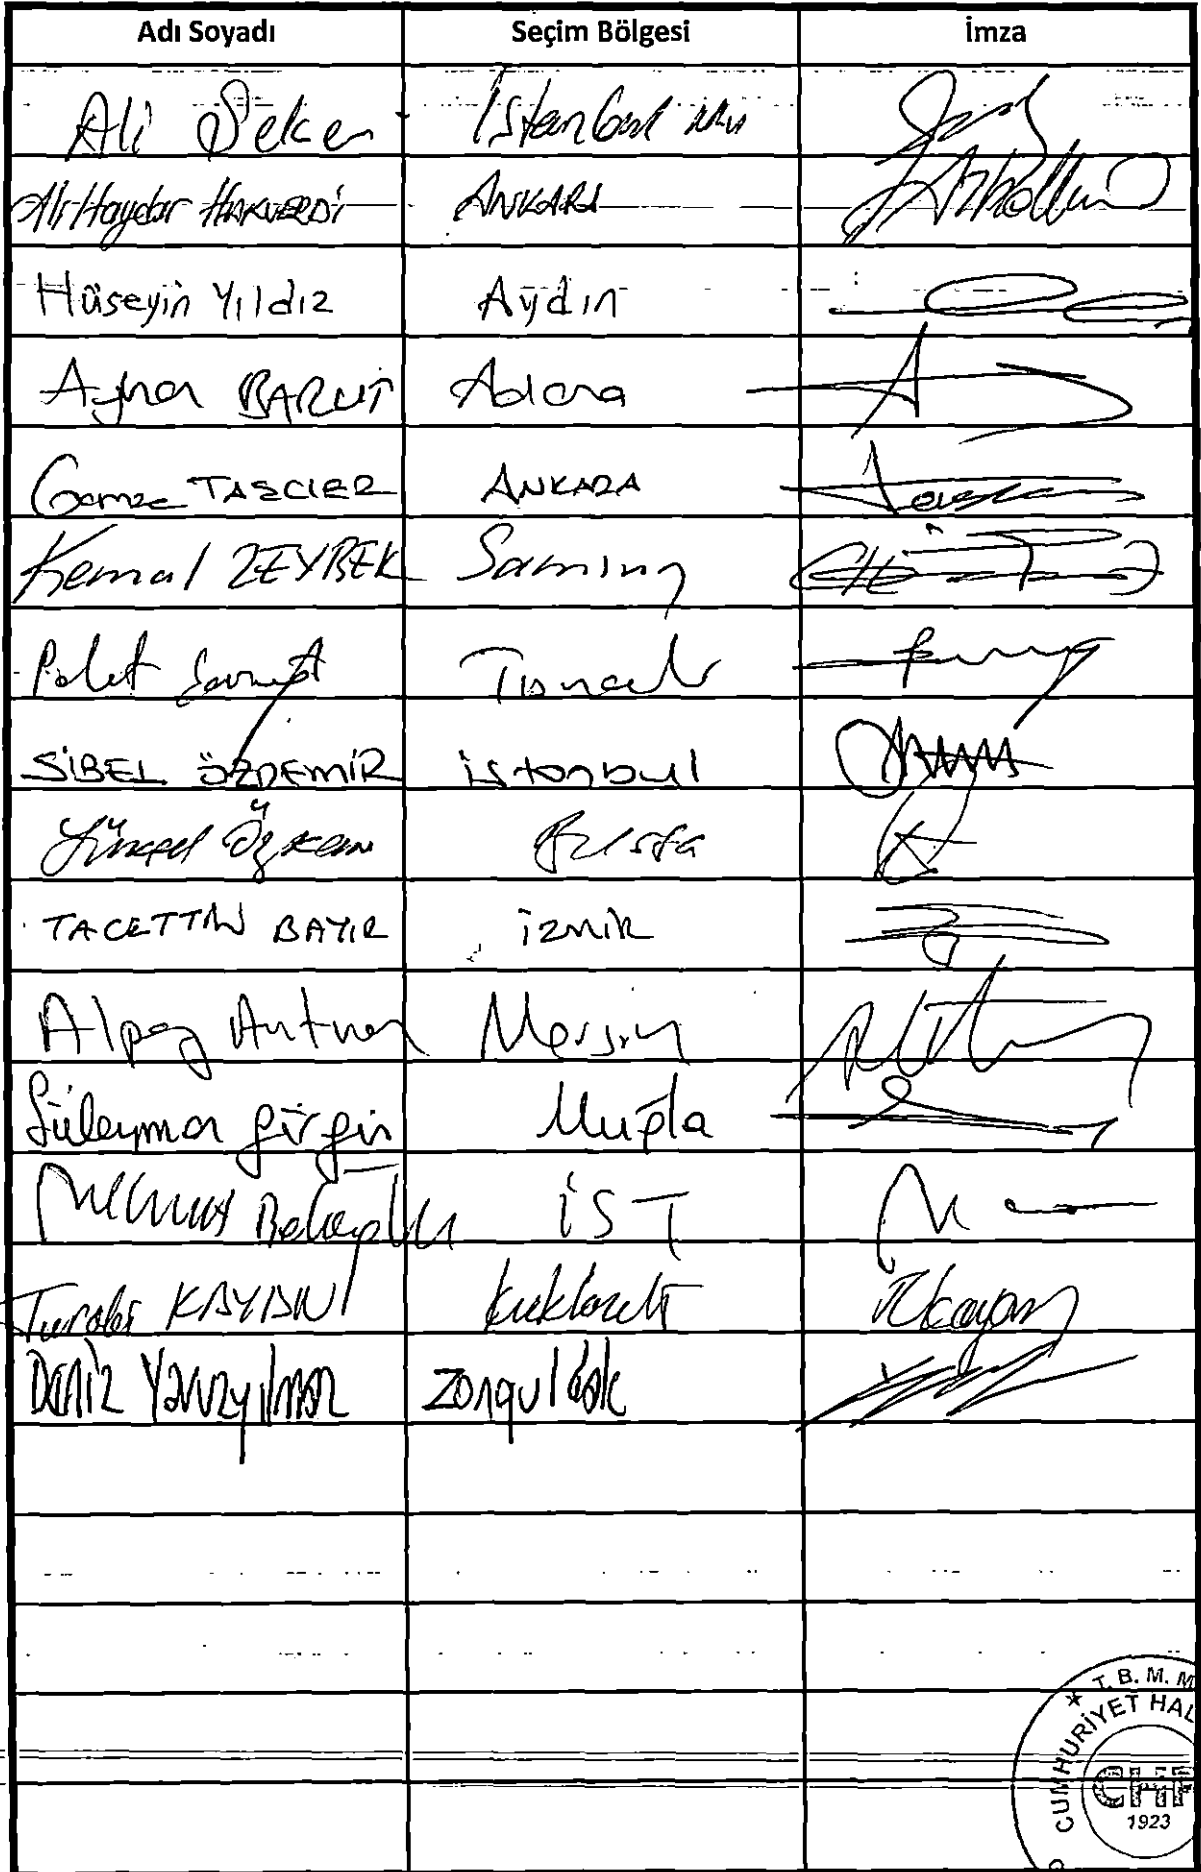 Adı Soyadı Seçim Bölgesi İmza
Ali Şeker İstanbul
Ali Haydar HAKVERDİ ANKARA
Hüseyin Yıldız Aydın
Ayhan BARUT Adana
Gamze TAŞCIER ANKARA
Kemal ZEYBEK Samsun
Polat Şaroğlu Tunceli
SİBEL ÖZDEMİR istanbul
Yüksel Özkan Bursa
TACETTİN BAYIR izmir
Alpay Antmen Mersin
Süleyman Girgin Muğla
Bekaroğlu İST
Turabi KAYAN Kırklareli
Deniz Yavuzyılmaz Zonguldak
T. B. M. M
CUMHURİYET HAL
CHP
1923